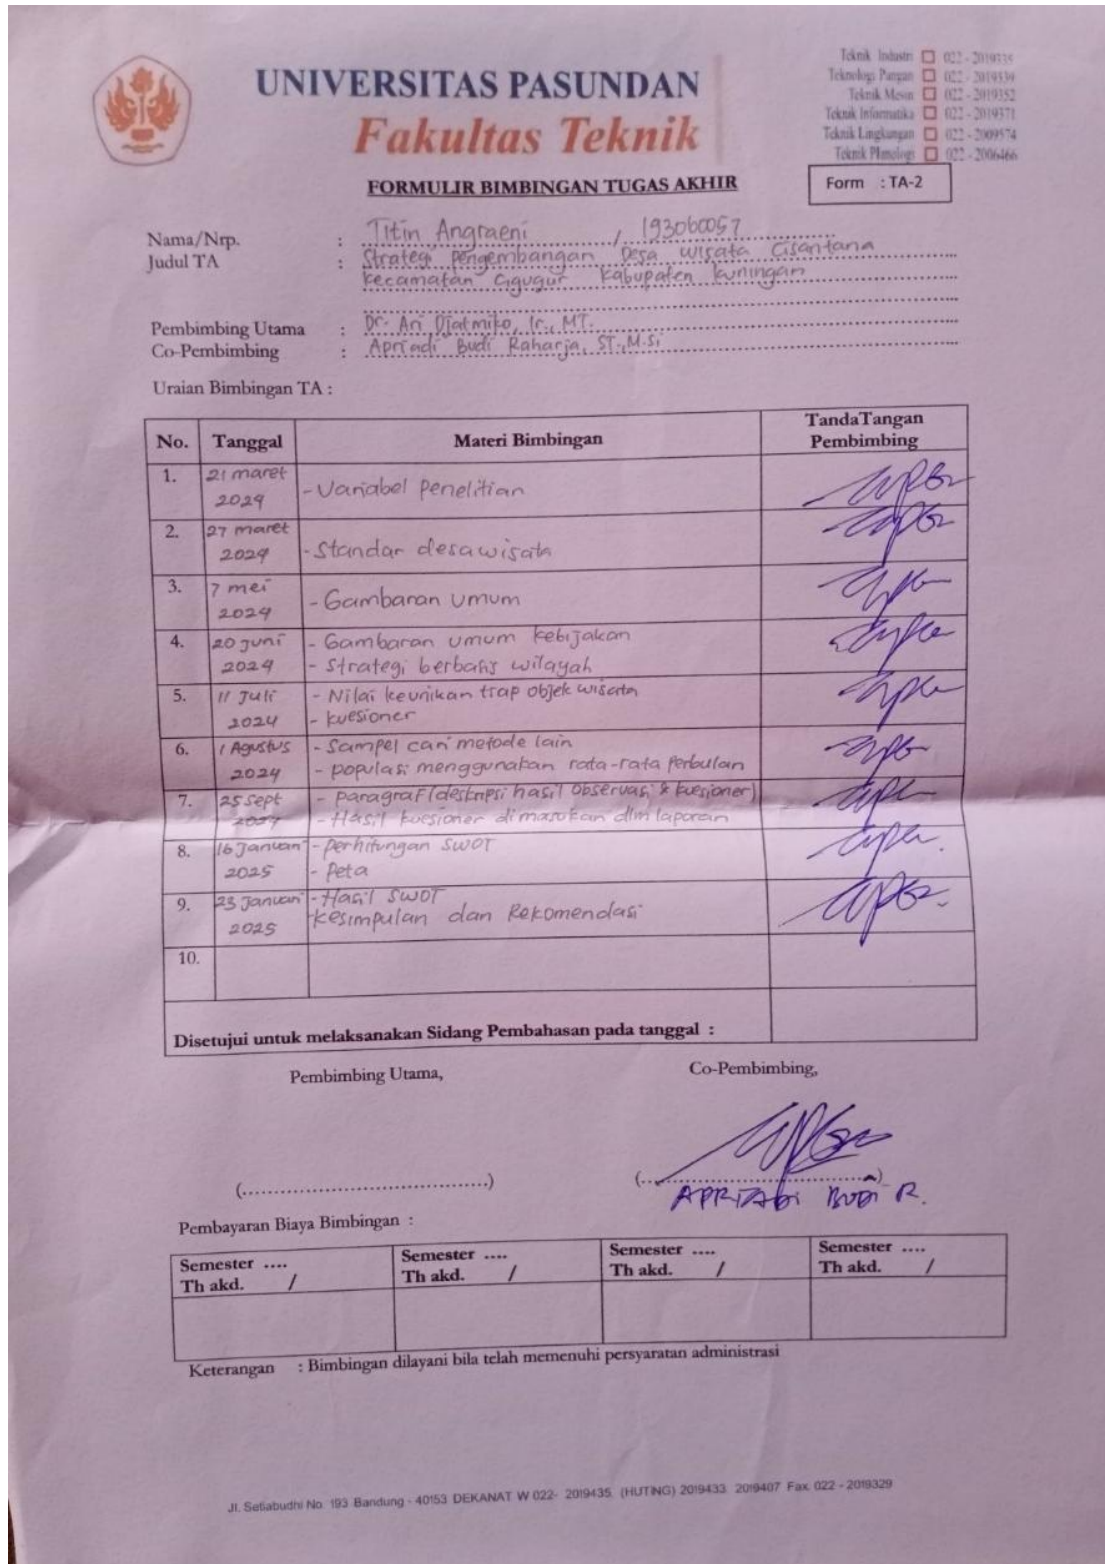 UNIVERSITAS PASUNDAN
Fakultas Teknik
Teknik Industri 022 - 2019335
Teknologi Pangan 022 - 2019339
Teknik Mesin 022 - 2019352
Teknik Informatika 022 - 2019371
Teknik Lingkungan 022 - 2009574
Teknik Planologi 022 - 2006466
FORMULIR BIMBINGAN TUGAS AKHIR
Form : TA-2
Nama/Nrp. : Titin Angraeni / 193060057
Judul TA : Strategi Pengembangan Desa Wisata Cisantana
Kecamatan Cigugur Kabupaten Kuningan
Pembimbing Utama : Dr. Ari Djatmiko, Ir., MT.
Co-Pembimbing : Apriadi Budi Raharja, ST.,M.Si
Uraian Bimbingan TA :
No. Tanggal Materi Bimbingan TandaTangan Pembimbing
1. 21 maret 2024 - Variabel Penelitian
2. 27 maret 2024 - Standar desa wisata
3. 7 mei 2024 - Gambaran Umum
4. 20 Juni 2024 - Gambaran umum kebijakan
- Strategi berbasis wilayah
5. 11 Juli 2024 - Nilai keunikan trap objek wisata
- kuesioner
6. 1 Agustus 2024 - Sampel cari metode lain
- populasi menggunakan rata-rata perbulan
7. 25 Sept 2024 - paragraf (deskripsi hasil observasi & kuesioner)
- Hasil kuesioner di masukan dlm laporan
8. 16 Januari 2025 - perhitungan SWOT
- Peta
9. 23 Januari 2025 - Hasil SWOT
- Kesimpulan dan Rekomendasi
10.
Disetujui untuk melaksanakan Sidang Pembahasan pada tanggal :
Pembimbing Utama, Co-Pembimbing,
(......................................) (......................................)
APRIADI BUDI R.
Pembayaran Biaya Bimbingan :
Semester .... Semester .... Semester .... Semester ....
Th akd. / Th akd. / Th akd. / Th akd. /
Keterangan : Bimbingan dilayani bila telah memenuhi persyaratan administrasi
Jl. Setiabudhi No. 193 Bandung - 40153 DEKANAT W 022- 2019435, (HUTING) 2019433, 2019407 Fax. 022 - 2019329